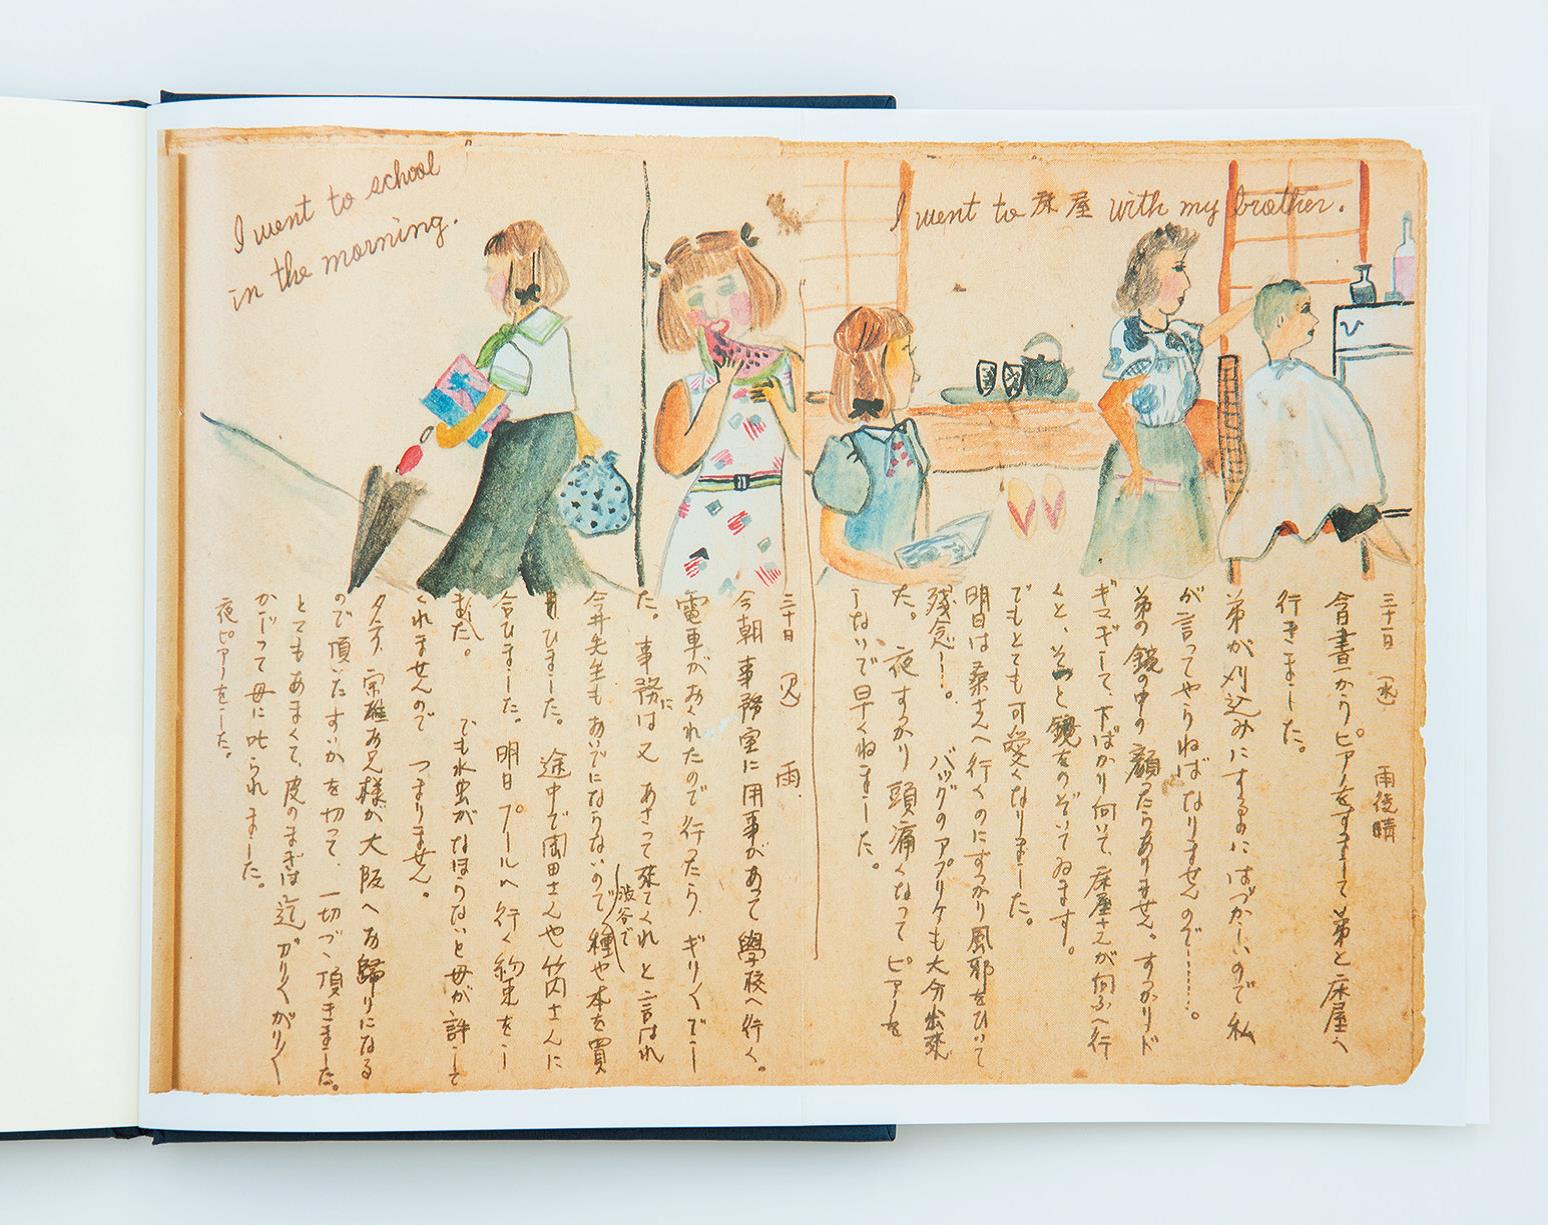 I went to school
in the morning.
I went to 床屋 with my brother.
三十一日 (水) 雨後晴
からピアノをすまして、弟と床屋へ
行きました。
弟が刈込みにするのにはづかしいので私
が言ってやらねばなりませんので……。
弟の鏡の中の顔ったらありません。すっかりド
ギマギして、下ばかり向いて、床屋さんが向ふへ行
くと、そっと鏡をのぞいてゐます。
でもとても可愛くなりました。
明日は桑さんへ行くのにすっかり風邪をひいて
残念し。 バッグのアプリケも大分出来
た。夜すっかり頭痛くなってピアノを
しないで早くねました。
三十日 (火) 雨.
今朝事務室に用事があって學校へ行く。
電車がおくれたので行ったら、ギリ〱でし
た。事務には又あさって來てくれと言はれ
今井先生もおいでにならないので渋谷で種や本を買
ひました。途中で岡田さんや竹内さんに
会ひました。明日プールへ行く約束をし
ました。 でも水虫がなほらないと母が許して
くれませんので つまりません。
夕方、宗雄お兄様が大阪へお歸りになる
ので頂いたすいかを切って、一切づゝ頂きました。
とてもあまくて、皮のまぎは迄ガリ〱がリ〱
かじって母に叱られました。
夜ピアノをした。